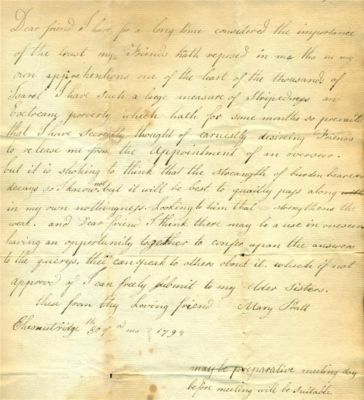 Dear friend I have for a long time considered the importance
of the trust my Friends hath reposed in me tho in my
own apprehentions one of the least of the thousands of
Israel I have such a large measure of Stripedness an
Exelceany poverty which hath for some months so prevail
that I have secreatly thought of earnestly desireing Friends
to release me from the Appointment of an overseer.
but it is shoking to think that the strength of burden bearers
decays so I know not but it will be best to quietly pass along
in my own nothingness Looking to him that strengthens the
weak. and Dear friend I think there may be a use in overseers
having an oppertunity together to confer upon the answers
to the queerys, thee can speak to others about it. which if not
approved of I can freely submit to my elder Sisters.
this from thy Loving friend Mary
Chesnutridge mo 1794
may be preparative meeting day
before meeting will be suitable